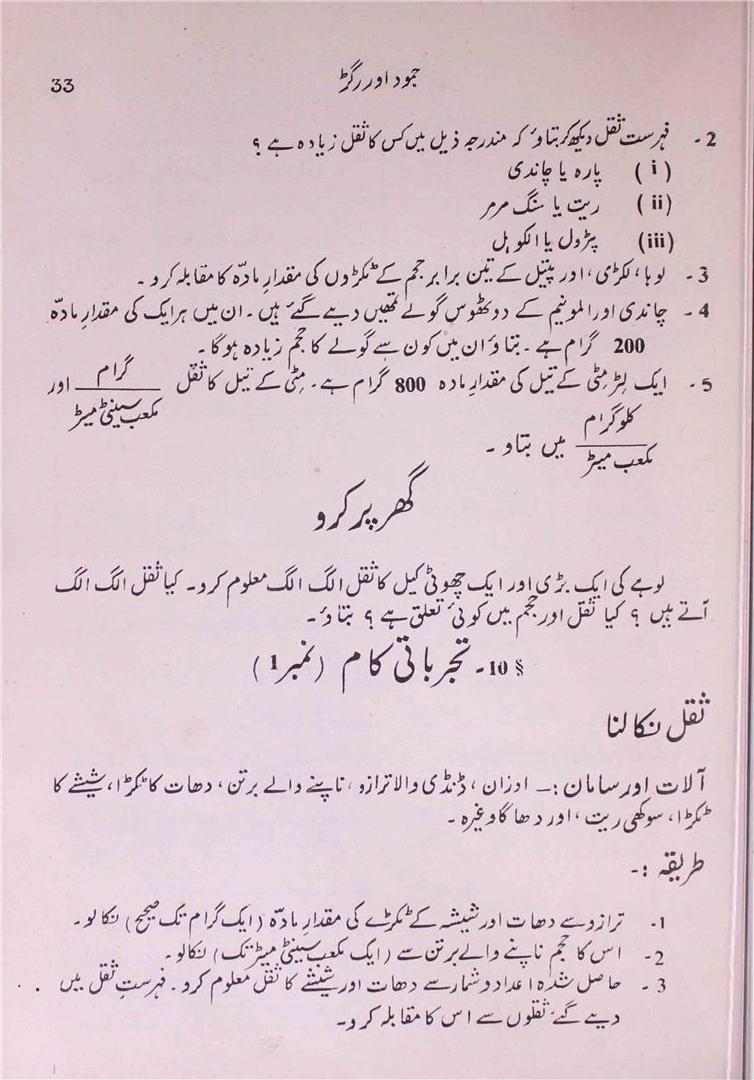 جمود اور رگڑ
33
2 - فہرست ثقل دیکھ کر بتاؤ کہ مندرجہ ذیل میں کس کا ثقل زیادہ ہے ؟
( i ) پارہ یا چاندی
(ii) ریت یا سنگ مرمر
(iii) پٹرول یا الکوہل
3 - لوہا ، لکڑی ، اور پیتل کے تین برابر حجم کے ٹکڑوں کی مقدارِ مادّہ کا مقابلہ کرو ۔
4 - چاندی اور المونیم کے دو ٹھوس گولے تمھیں دیے گئے ہیں ۔ ان میں ہر ایک کی مقدارِ مادّہ
200 گرام ہے ۔ بتاؤ ان میں کون سے گولے کا حجم زیادہ ہوگا ۔
5 - ایک لٹر مٹی کے تیل کی مقدارِ مادہ 800 گرام ہے ۔ مٹی کے تیل کا ثقل گرام / مکعب سینٹی میٹر اور
کلوگرام / مکعب میٹر میں بتاو ۔
گھر پر کرو
لوہے کی ایک بڑی اور ایک چھوٹی کیل کا ثقل الگ الگ معلوم کرو ۔ کیا ثقل الگ الگ
آتے ہیں ؟ کیا ثقل اور حجم میں کوئی تعلق ہے ؟ بتاؤ ۔
§ 10 ۔ تجرباتی کام (نمبر 1)
ثقل نکالنا
آلات اور سامان :— اوزان ، ڈنڈی والا ترازو ، ناپنے والے برتن ، دھات کا ٹکڑا ، شیشے کا
ٹکڑا ، سوکھی ریت ، اور دھاگا وغیرہ ۔
طریقہ :-
1- ترازو سے دھات اور شیشہ کے ٹکڑے کی مقدارِ مادّہ (ایک گرام تک صحیح) نکالو ۔
2 - اس کا حجم ناپنے والے برتن سے (ایک مکعب سینٹی میٹر تک) نکالو ۔
3 - حاصل شدہ اعداد و شمار سے دھات اور شیشے کا ثقل معلوم کرو ۔ فہرستِ ثقل میں
دیے گئے ثقلوں سے اس کا مقابلہ کرو ۔